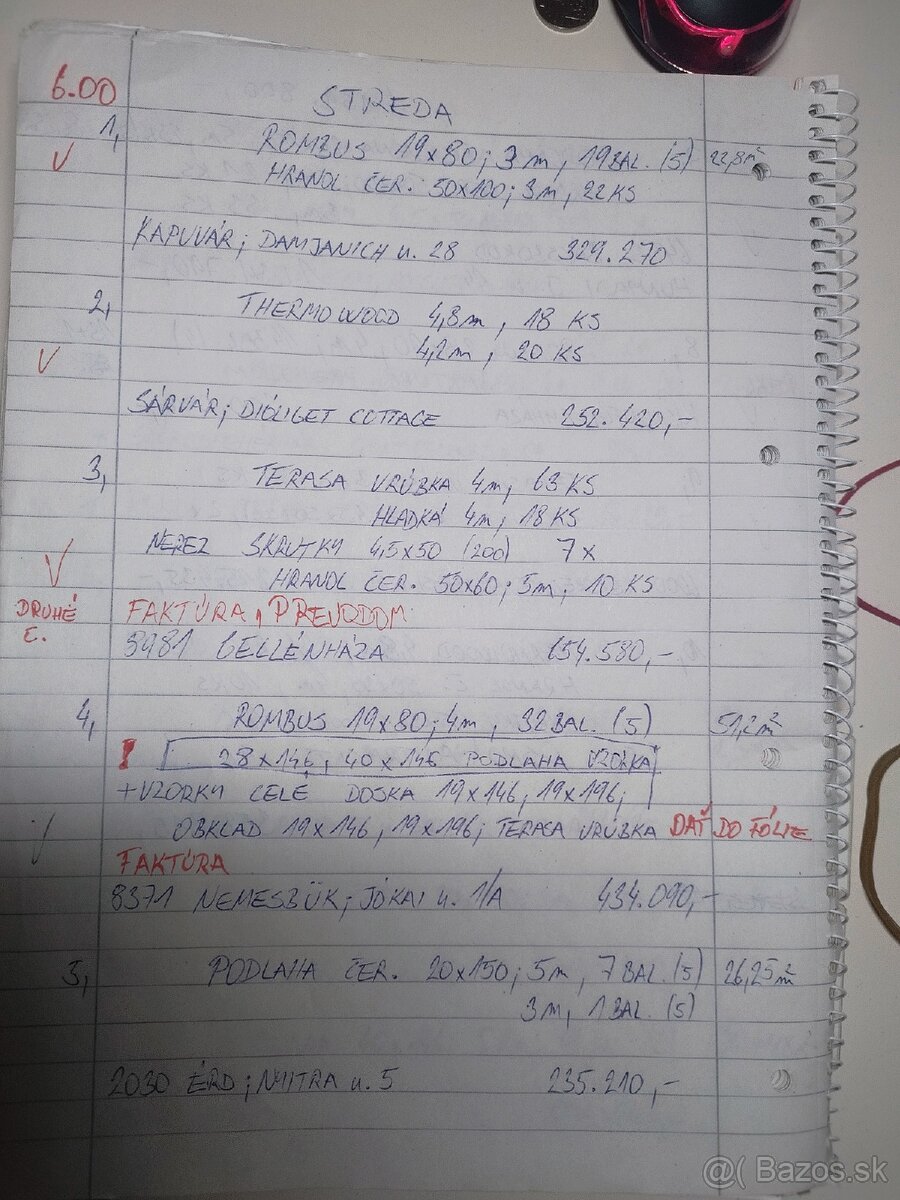 6.00
STREDA
1, ROMBUS 19x80; 3m, 19 BAL. (5) 22,8m²
V
HRANOL ČER. 50x100; 3m, 22 KS
KAPUVÁR; DAMJANICH u. 28 329.270
2, THERMOWOOD 4,8m, 18 KS
4,2m, 20 KS
V
SÁRVÁR; DIÓLIGET COTTAGE 252.420,-
3, TERASA VRÚBKA 4m, 63 KS
HLADKÁ 4m, 18 KS
NEREZ SKRUTKY 4,5x50 (200) 7x
V
HRANOL ČER. 50x60; 5m, 10 KS
DRUHÉ Č. FAKTÚRA, PREVODOM
9981 GELLÉNHÁZA 654.580,-
4, ROMBUS 19x80; 4m, 32 BAL. (5) 51,2m²
! 28x146, 40x146 PODLAHA VZORKA
+VZORKY CELÉ DOSKA 19x146, 19x196;
OBKLAD 19x146, 19x196; TERASA VRÚBKA DAŤ DO FÓLIE
V
FAKTÚRA
8371 NEMESBÜK; JÓKAI u. 1/A 434.090,-
5, PODLAHA ČER. 20x150; 5m, 7 BAL. (5) 26,25m²
3m, 1 BAL. (5)
2030 ÉRD; NYITRA u. 5 235.210,-
@( Bazos.sk